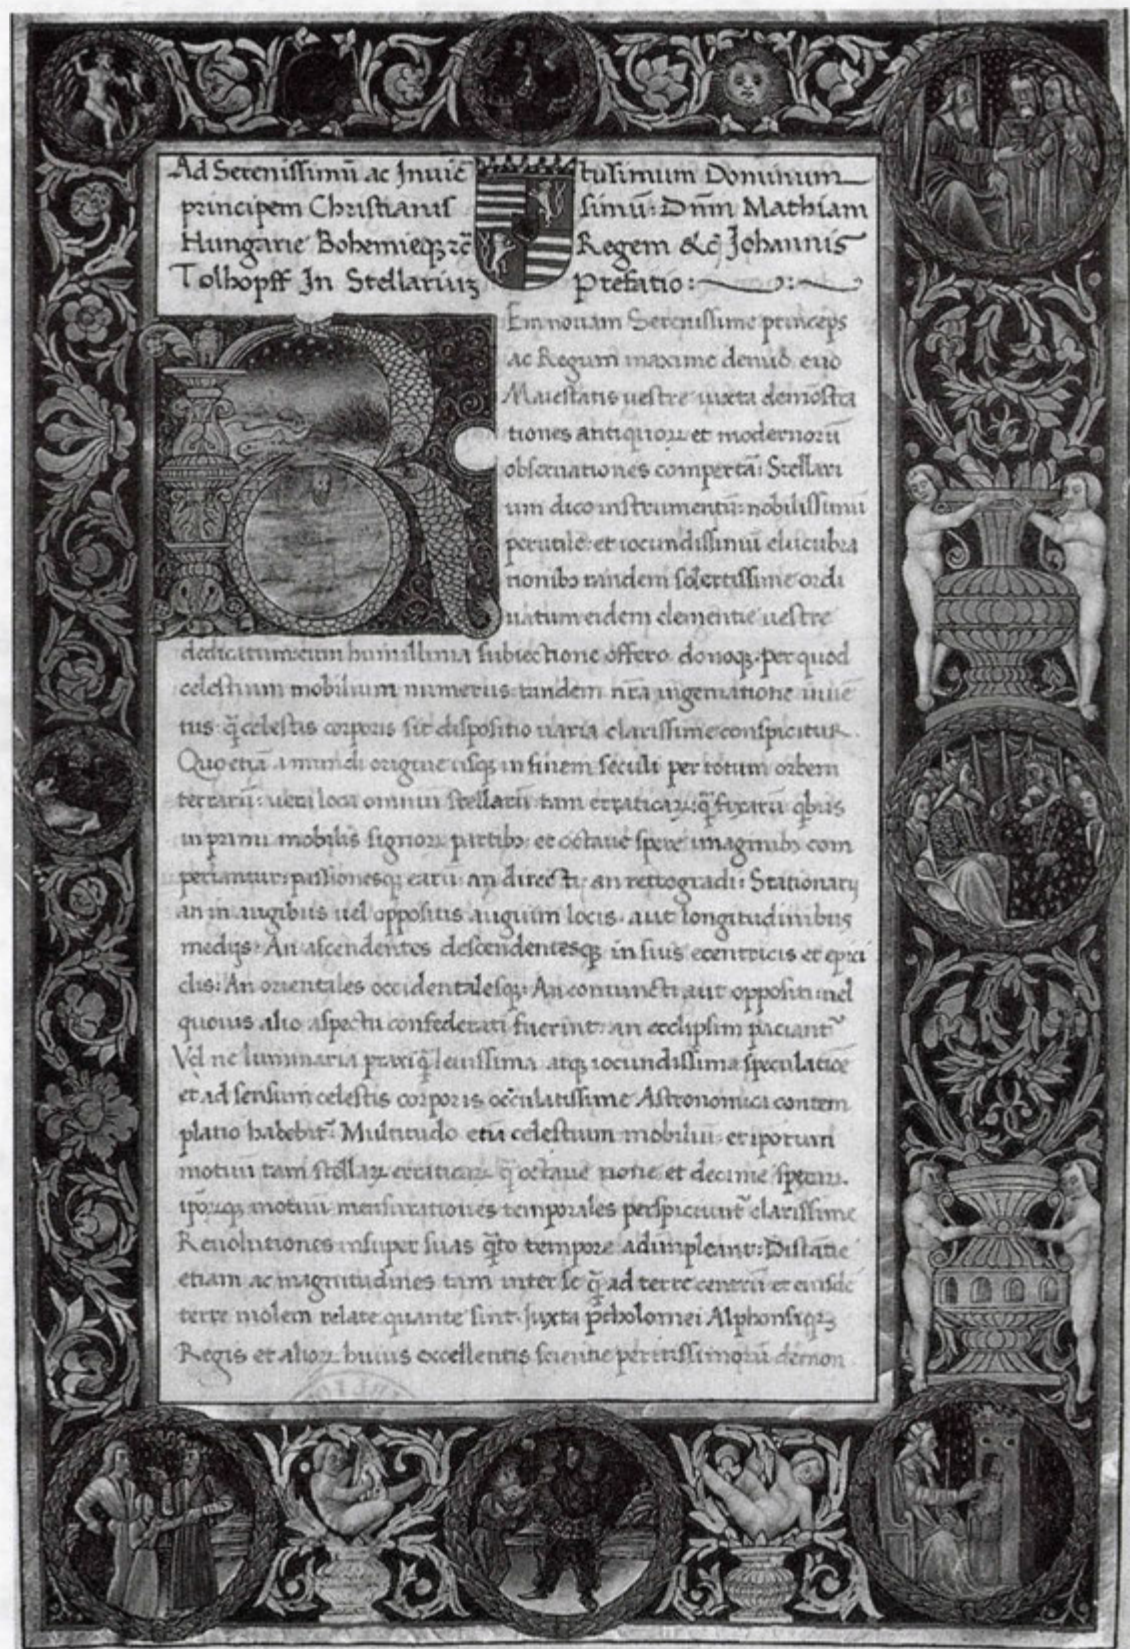 Ad Serenissimū ac Invic̄tissimum Dominum
principem Christianissimū: Dn̄m Mathiam
Hungarie Bohemieqꝫ ꝛc̄ Regem &c̄ Johannis
Tolhopff In Stellariuꝫ Prefatio:
REm nouam Serenissime princeps
ac Regum maxime denuo euo
Maiestatis uestre iuxta demōstra
tiones antiquoꝝ et modernorū
obseruationes compertā: Stellari
um dico instrumentū: nobilissimū
perutile et iocundissimū elucubra
tionibꝫ tandem solertissime ordi
natum eidem clementie uestre
dedicatum: cum humillima subiectione offero donoqꝫ: per quod
celestium mobilium numerus tandem nr̄a ingeniatione inuē
tus q̄ celestis corporis sit dispositio uaria clarissime conspicitur.
Quo etiā a mundi origine usqꝫ in finem seculi per totum orbem
terrarū: ueri loca omniū stellarū tam erraticaꝝ: q̄ fixarū qbus
in primi mobilis signoꝝ partibꝫ et octaue spere imaginibꝫ com
periantur: passionesqꝫ earū an directi: an retrogradi: Stationarij
an in augibus uel oppositis augium locis. aut longitudinibus
medijs: An ascendentes descendentesqꝫ in suis ecentricis et epici
clis: An orientales occidentalesqꝫ: An coniuncti aut oppositi uel
quouis alio aspectu confederati fuerint: an ecclipsim paciant᷑
Vel ne luminaria praxiq̄ leuissima atqꝫ iocundissima speculatiōe
et ad sensum celestis corporis occulatissime Astronomica contem
platio habebit᷑ Multitudo etiā celestium mobiliū et ipsorum
motuū tam stellaꝝ erraticaꝝ q̄ octaue none et decime speraꝝ.
ipsoꝝqꝫ motuū mensurationes temporales perspiciunt᷑ clarissime
Reuolutiones insuper suas q̄to tempore adimpleant: Distātie
etiam ac magnitudines tam inter se q̄ ad terre centrū et eiusdē
terre molem relate quante sint. Juxta ptholomei Alphonsiqꝫ
Regis et alioꝝ huius excellentis scientie peritissimorū demon